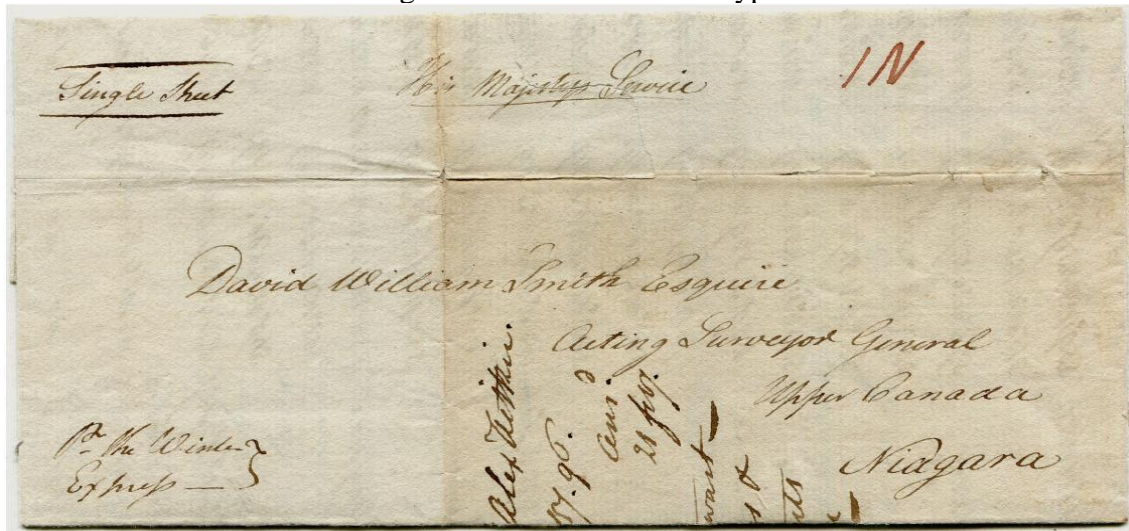 Single Sheet
His Majestys Service
1N
David William Smith Esquire
Acting Surveyor General
Upper Canada
Niagara
Pr. the Winter
Express
Alexr Aitkin.
17.96.
ans'd
21 feby.